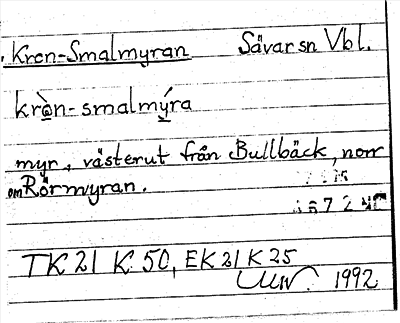 Kron-Smalmyran Sävar sn Vbl.
kròn-smalmýra
myr, västerut från Bullbäck, norr
om Rörmyran.
TK 21 K 50, EK 21 K 25
1992